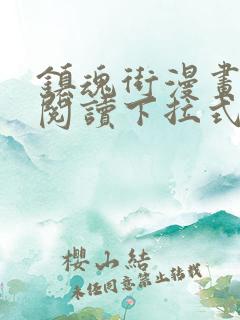 鎮魂街漫畫
閱讀下拉式
櫻小結
未經同意禁止轉載